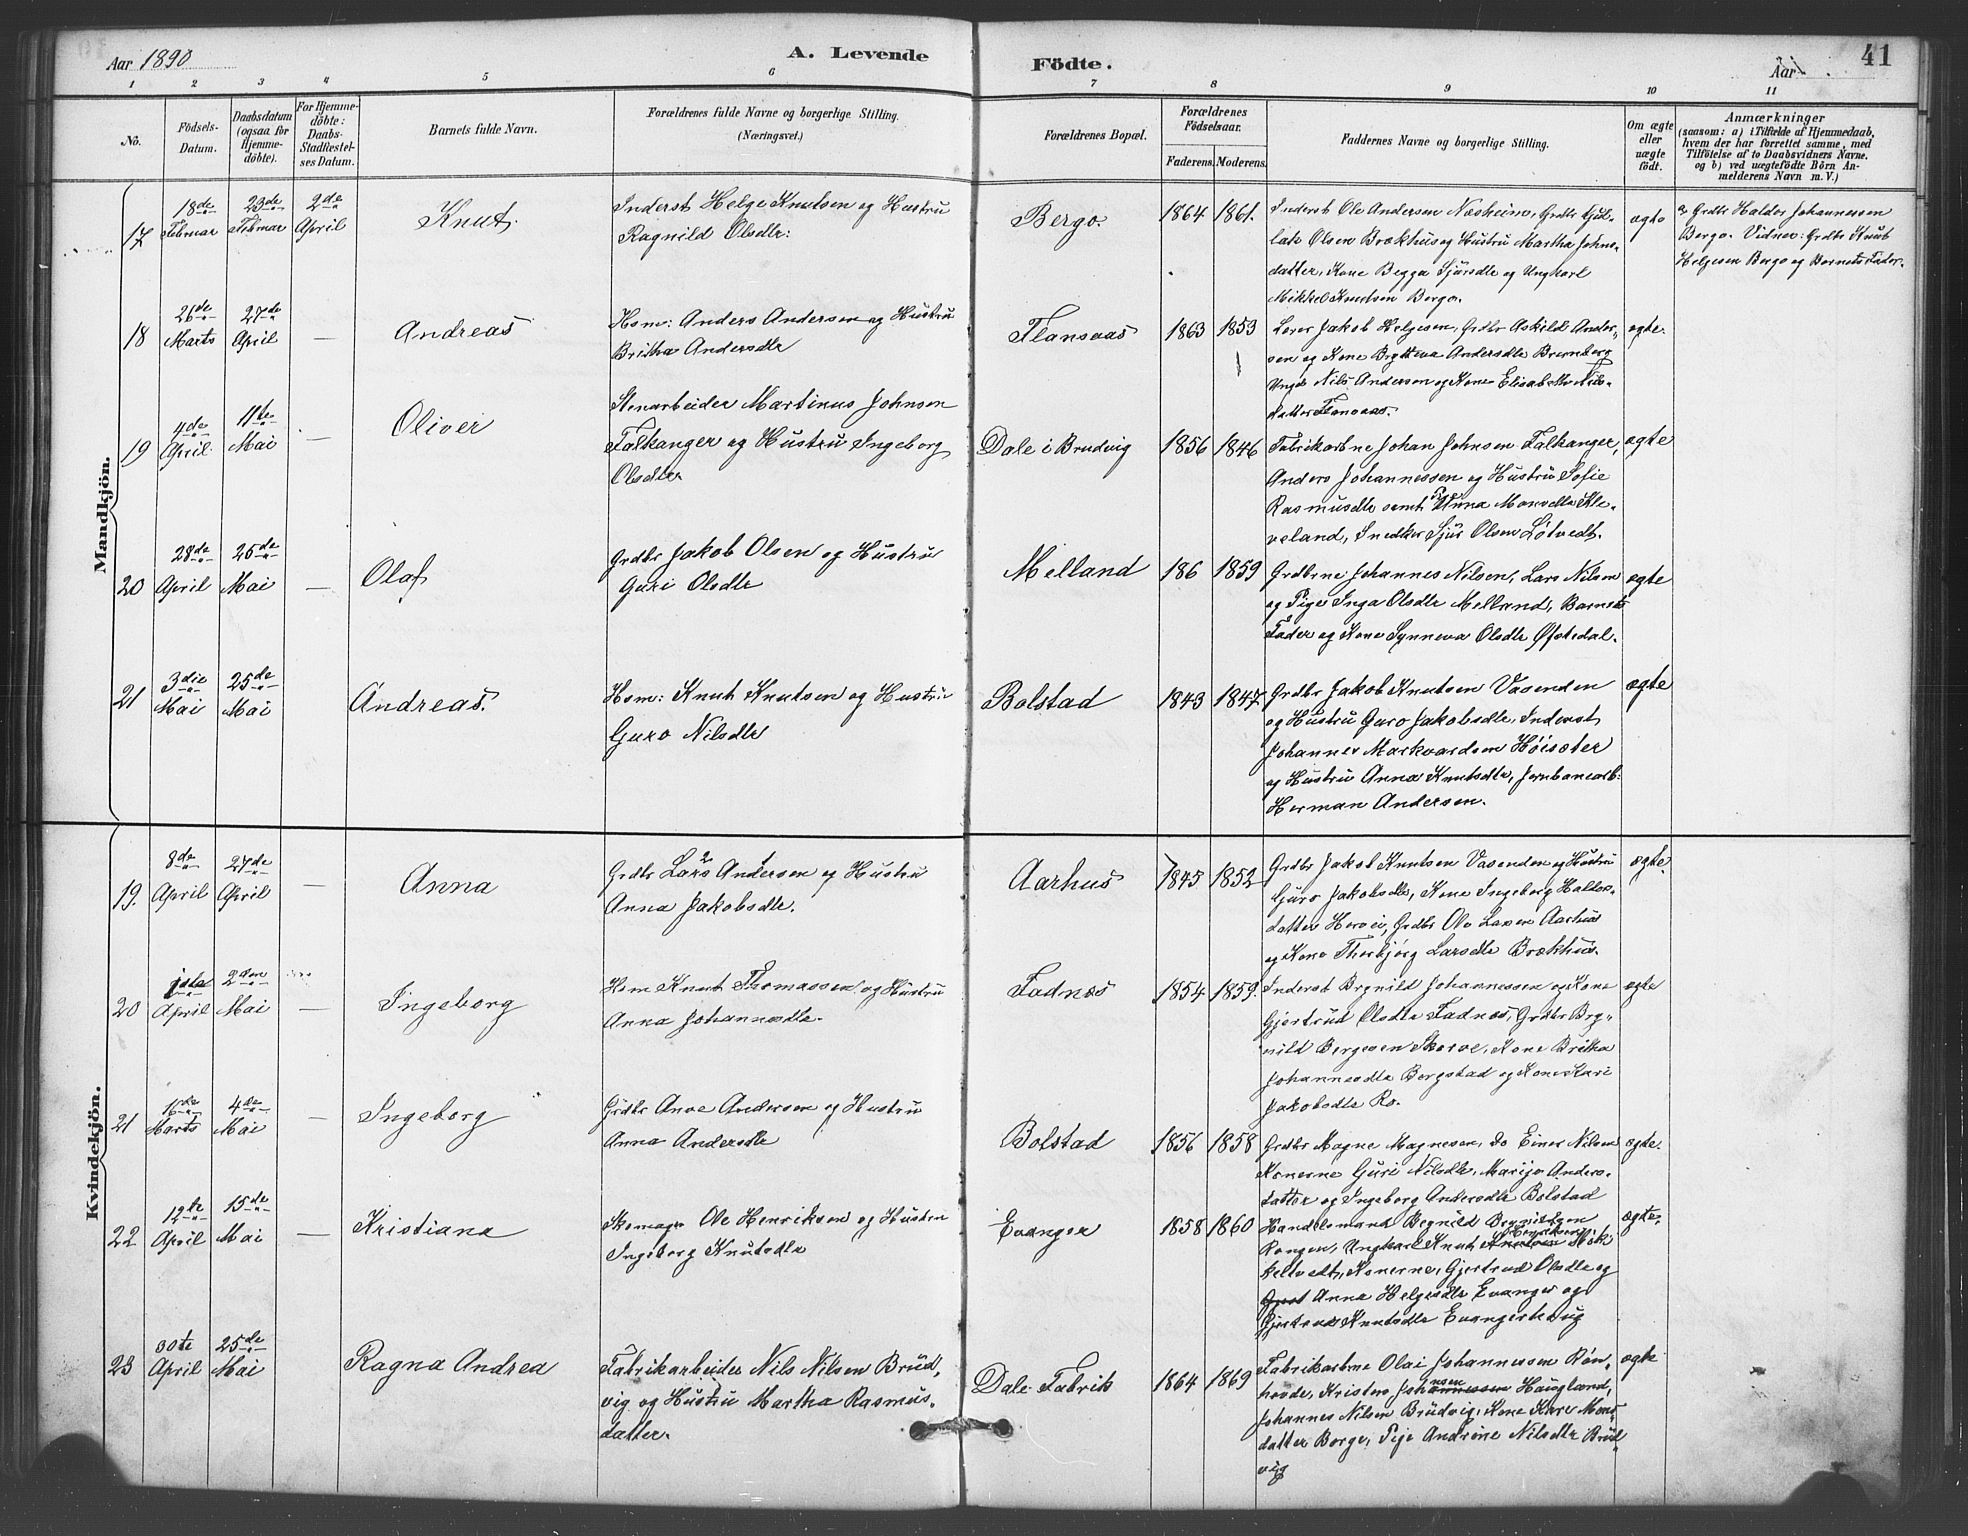 Aar 1890
A. Levende
Födte.
Aar
41
1 2 3 4 5 6 7 8 9 10 11
No.
Födsels-Datum.
Daabsdatum (ogsaa for Hjemme-döbte).
For Hjemme-döbte: Daabs-Stadfæstel-ses Datum.
Barnets fulde Navn.
Forældrenes fulde Navne og borgerlige Stilling.
(Næringsvei.)
Forældrenes Bopæl.
Forældrenes Födselsaar.
Faderens. Moderens.
Faddernes Navne og borgerlige Stilling.
Om ægte eller uægte födt.
Anmærkninger
(saasom: a) i Tilfælde af Hjemmedaab, hvem der har forrettet samme, med Tilföielse af to Daabsvidners Navne, og b) ved uægtefödte Börn An-melderens Navn m. V.)
Mandkjön.
17
18de Februar
23de Februar
2de April
Knut
Inderst Helge Knutsen og Hustru
Ragnild Olsdtr:
Bergo.
1864 1861.
Inderst Ole Andersen Næsheim, Grdbr Gul-
lak Olsen Brækhus og Hustru Martha Johns-
datter, Kone Begga Sjursdtr og Ungkarl
Mikkel Knutsen Bergo.
ægte
a, Grdbr Haldor Johannessen
Bergo. Vidner: Grdbr Knut
Helgesen Bergo og Barnets Fader.
18
26de Marts
27de April
—
Andreas
Hsm: Anders Andersen og Hustru
Britha Andersdtr
Flansaas
1863 1853
Lærer Jakob Helgesen, Grdbr Askild Ander-
sen og Kone Brytteva Andersdtr Brunborg
Ungk Nils Andersen og Kone Elisabeth Nils-
datter Flansaas.
ægte.
19
4de April
11te Mai
—
Oliver
Stenarbeider Martinus Johnsen
Falkanger og Hustru Ingeborg
Olsdtr
Dale i Brudvig
1856 1846
Fabrikarbne Johan Johnsen Falkanger,
Anders Johannessen og Hustru Sofie
Rasmusdtr samt Pige Anna Monsdtr Kle-
veland, Snedker Sjur Olsen Løtvedt.
ægte
20
28de April
25de Mai
—
Olaf
Grdbr Jakob Olsen og Hustru
Guri Olsdtr
Melland
186 1859
Grdbrne Johannes Nilsen, Lars Nilsen
og Pige Inga Olsdtr Melland, Barnets
Fader og Kone Synneva Olsdtr Øfstedal.
ægte
21
3die Mai
25de Mai
Andreas.
Hsm: Knut Knutsen og Hustru
Guro Nilsdtr
Bolstad
1843 1847
Grdbr Jakob Knutsen Vasenden
og Hustru Guro Jakobsdtr, Inderst
Johannes Markvardsen Høisæter
og Hustru Anna Knutsdtr, Jernbanearb:
Herman Andersen.
ægte
Kvindekjön.
19.
8de April
27de April
—
Anna
Grdbr Lars 2 Andersen 1 og Hustru
Anna Jakobsdtr.
Aarhus
1845 1852
Grdbr Jakob Knutsen Vasenden og Hustru
Guro Jakobsdtr, Kone Ingeborg Haldors-
datter Horvei, Grdbr Ole Larsen Aarhus
og Kone Thorbjørg Larsdtr Brækhus.
ægte.
20
1ste April
2den Mai
—
Ingeborg
Hsm Knut Thomassen og Hustru
Anna Johannesdtr.
Fadnæs
1854 1859.
Inderst Brynild Johannessen og Kone
Gjertrud Olsdtr Fadnæs, Grdbr Bry-
nild Bergesen Skorve, Kone Britha
Johannesdtr Bergstad og Kone Kari
Jakobsdtr Ro.
ægte
21
16de Marts
4de Mai
—
Ingeborg
Grdbr Arve Andersen og Hustru
Anna Andersdtr
Bolstad
1856 1858
Grdbr Magne Magnesen, do Einer Nilsen
Konerne Guri Nilsdtr, Marijo Anders-
datter og Ingeborg Andersdtr Bolstad
ægte.
22
12te April
15de Mai
—
Kristiana
Skomager Ole Henriksen og Hustru
Ingeborg Knutsdtr
Evanger
1858 1860
Handelsmand Brynild Brynildsen
Rongen, Ungkarl Knut Knutsen Henriksen Mik-
keltvedt, Konerne, Gjertrud Olsdtr og
Anna Helgesdtr Evanger og
Gjertrud Knutsdtr Evanger
ægte.
23
30te April
25de Mai
Ragna Andrea
Fabrikarbeider Nils Nilsen Brud-
vig og Hustru Martha Rasmus-
datter.
Dale Fabrik
1864 1869
Fabrikarbne Olai Johannessen Røn-
hovde, Kristen Johannessen nsen Haugland,
Johannes Nilsen Brudvig, Kone Kari Mons-
datter Borge, Pige Andrine Nilsdtr Brud-
vig
ægte